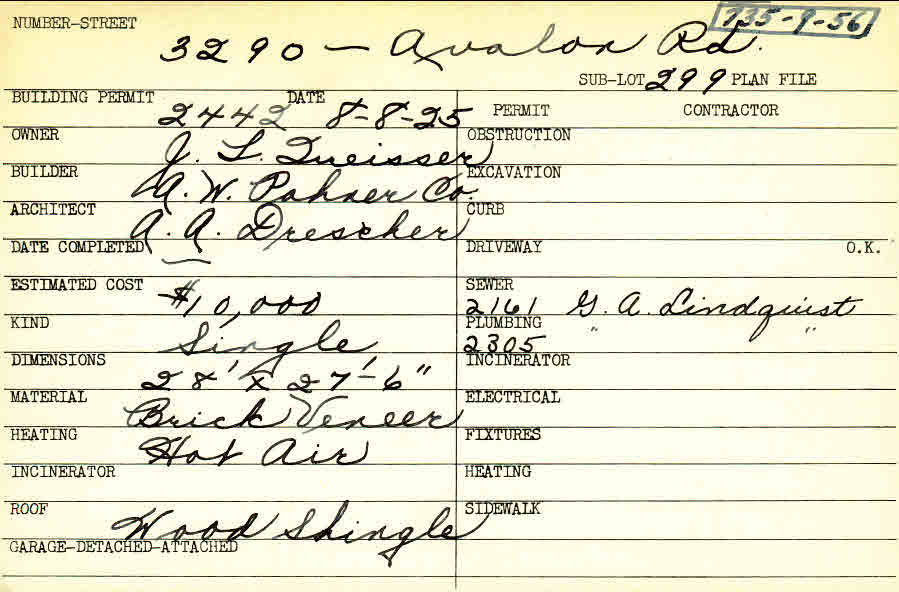 735-9-56
NUMBER-STREET 3290 - Avalon Rd.
SUB-LOT 299 PLAN FILE
BUILDING PERMIT 2442 DATE 8-8-25 PERMIT CONTRACTOR
OWNER J. L. OBSTRUCTION
BUILDER A. W. Co. EXCAVATION
ARCHITECT A. A. Drescher CURB
DATE COMPLETED DRIVEWAY O.K.
ESTIMATED COST $10,000 SEWER 2161 G. A. Lindquist
KIND Single PLUMBING 2305 " "
DIMENSIONS 28' x 27'-6" INCINERATOR
MATERIAL Brick Veneer ELECTRICAL
HEATING Hot Air FIXTURES
INCINERATOR HEATING
ROOF Wood Shingle SIDEWALK
GARAGE-DETACHED-ATTACHED